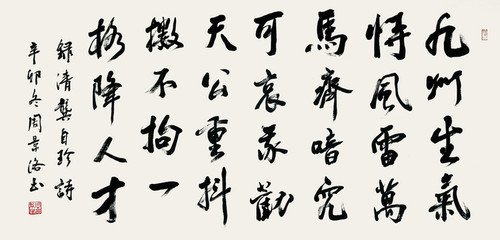 九州生氣
恃風雷萬
馬齊喑究
可哀我勸
天公重抖
擻不拘一
格降人才
録清龔自珍詩
辛卯冬周景洛书